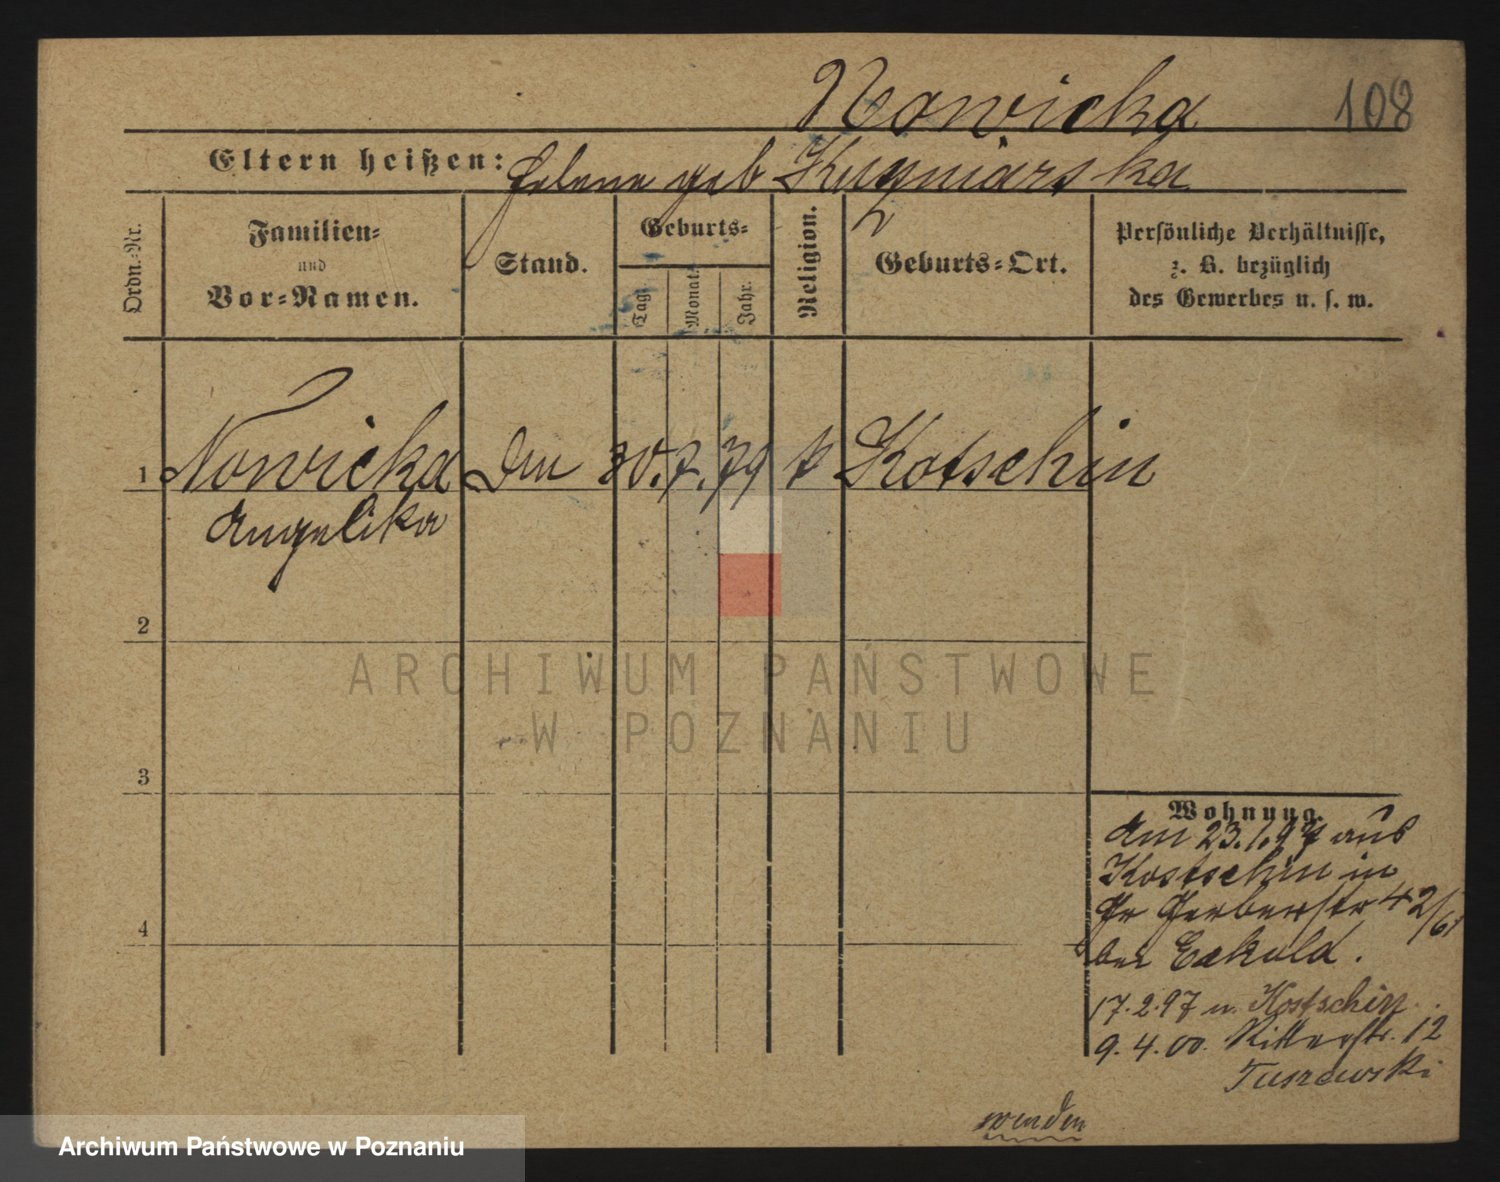 Nowicka 108
Eltern heißen: Helene geb
Ordn.=Nr.
Familien=
und
Vor=Namen.
Stand.
Geburts=
Tag.
Monat.
Jahr.
Religion.
Geburts=Ort.
Persönliche Verhältnisse,
z. B. bezüglich
des Gewerbes u. s. w.
1 Nowicka 30. 7. 79 k Kotschin
Angelika
2
3
4
Wohnung.
Am 23.1.97 aus
Kostschin in
Gr Gerberstr 42/61
bei
17.2.97 n. Kostschin.
9.4.00. Ritterstr. 12
wenden
ARCHIWUM PAŃSTWOWE
W POZNANIU
Archiwum Państwowe w Poznaniu